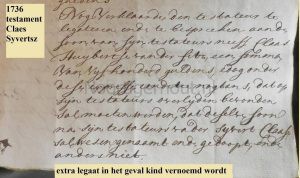 1736
testament
Claes
Syvertsz
Nog verklaarde den testateur te
legateren ende te bespreken aan de
soon van sijn testateurs neeff Claes
Huybertsz van der fits, een somma
van vijf hondert guldens, dog onder
dese
sijn testateurs overlijden bevonden
sal moeten worden, dat deselve soon
na sijn testateurs vader Syvert Claesz
sal wesen genaamt ende gedoopt, ende
anders niet.
extra legaat in het geval kind vernoemd wordt